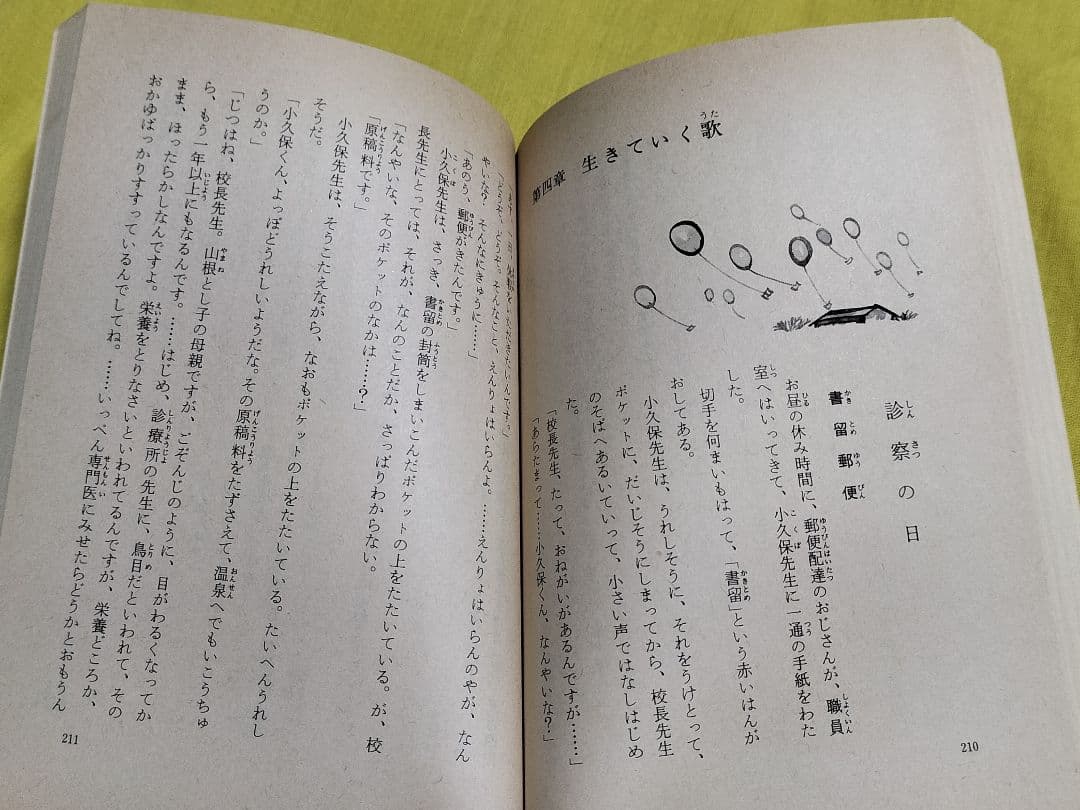 第四章 生きていく歌
診察の日
書留郵便
お昼の休み時間に、郵便配達のおじさんが、職員
室へはいってきて、小久保先生に一通の手紙をわた
した。
切手を何まいもはって、「書留」という赤いはんが
おしてある。
小久保先生は、うれしそうに、それをうけとって、
ポケットに、だいじそうにしまってから、校長先生
のそばへあるいていって、小さい声ではなしはじめ
た。
「校長先生、たって、おねがいがあるんですが……」
「あらたまって……小久保くん、なんやいな？」
210
いただきたいんです。」
「どうぞ、どうぞ。そんなこと、えんりょはいらんよ。……えんりょはいらんのやが、なん
やいな？ そんなにきゅうに……」
「あのう、郵便がきたんです。」
小久保先生は、さっき、書留の封筒をしまいこんだポケットの上をたたいている。が、校
長先生にとっては、それが、なんのことだか、さっぱりわからない。
「なんやいな、そのポケットのなかは……？」
「原稿料です。」
小久保先生は、そうこたえながら、なおもポケットの上をたたいている。たいへんうれし
そうだ。
「小久保くん、よっぽどうれしいようだな。その原稿料をたずさえて、温泉へでもいこうちゅ
うのか。」
「じつはね、校長先生。山根とし子の母親ですが、ごぞんじのように、目がわるくなってか
ら、もう一年以上にもなるんです。……はじめ、診療所の先生に、鳥目だといわれて、その
まま、ほったらかしなんですよ。栄養をとりなさいといわれてるんですが、栄養どころか、
おかゆばっかりすすっているんでしてね。……いっぺん専門医にみせたらどうかとおもうん
211